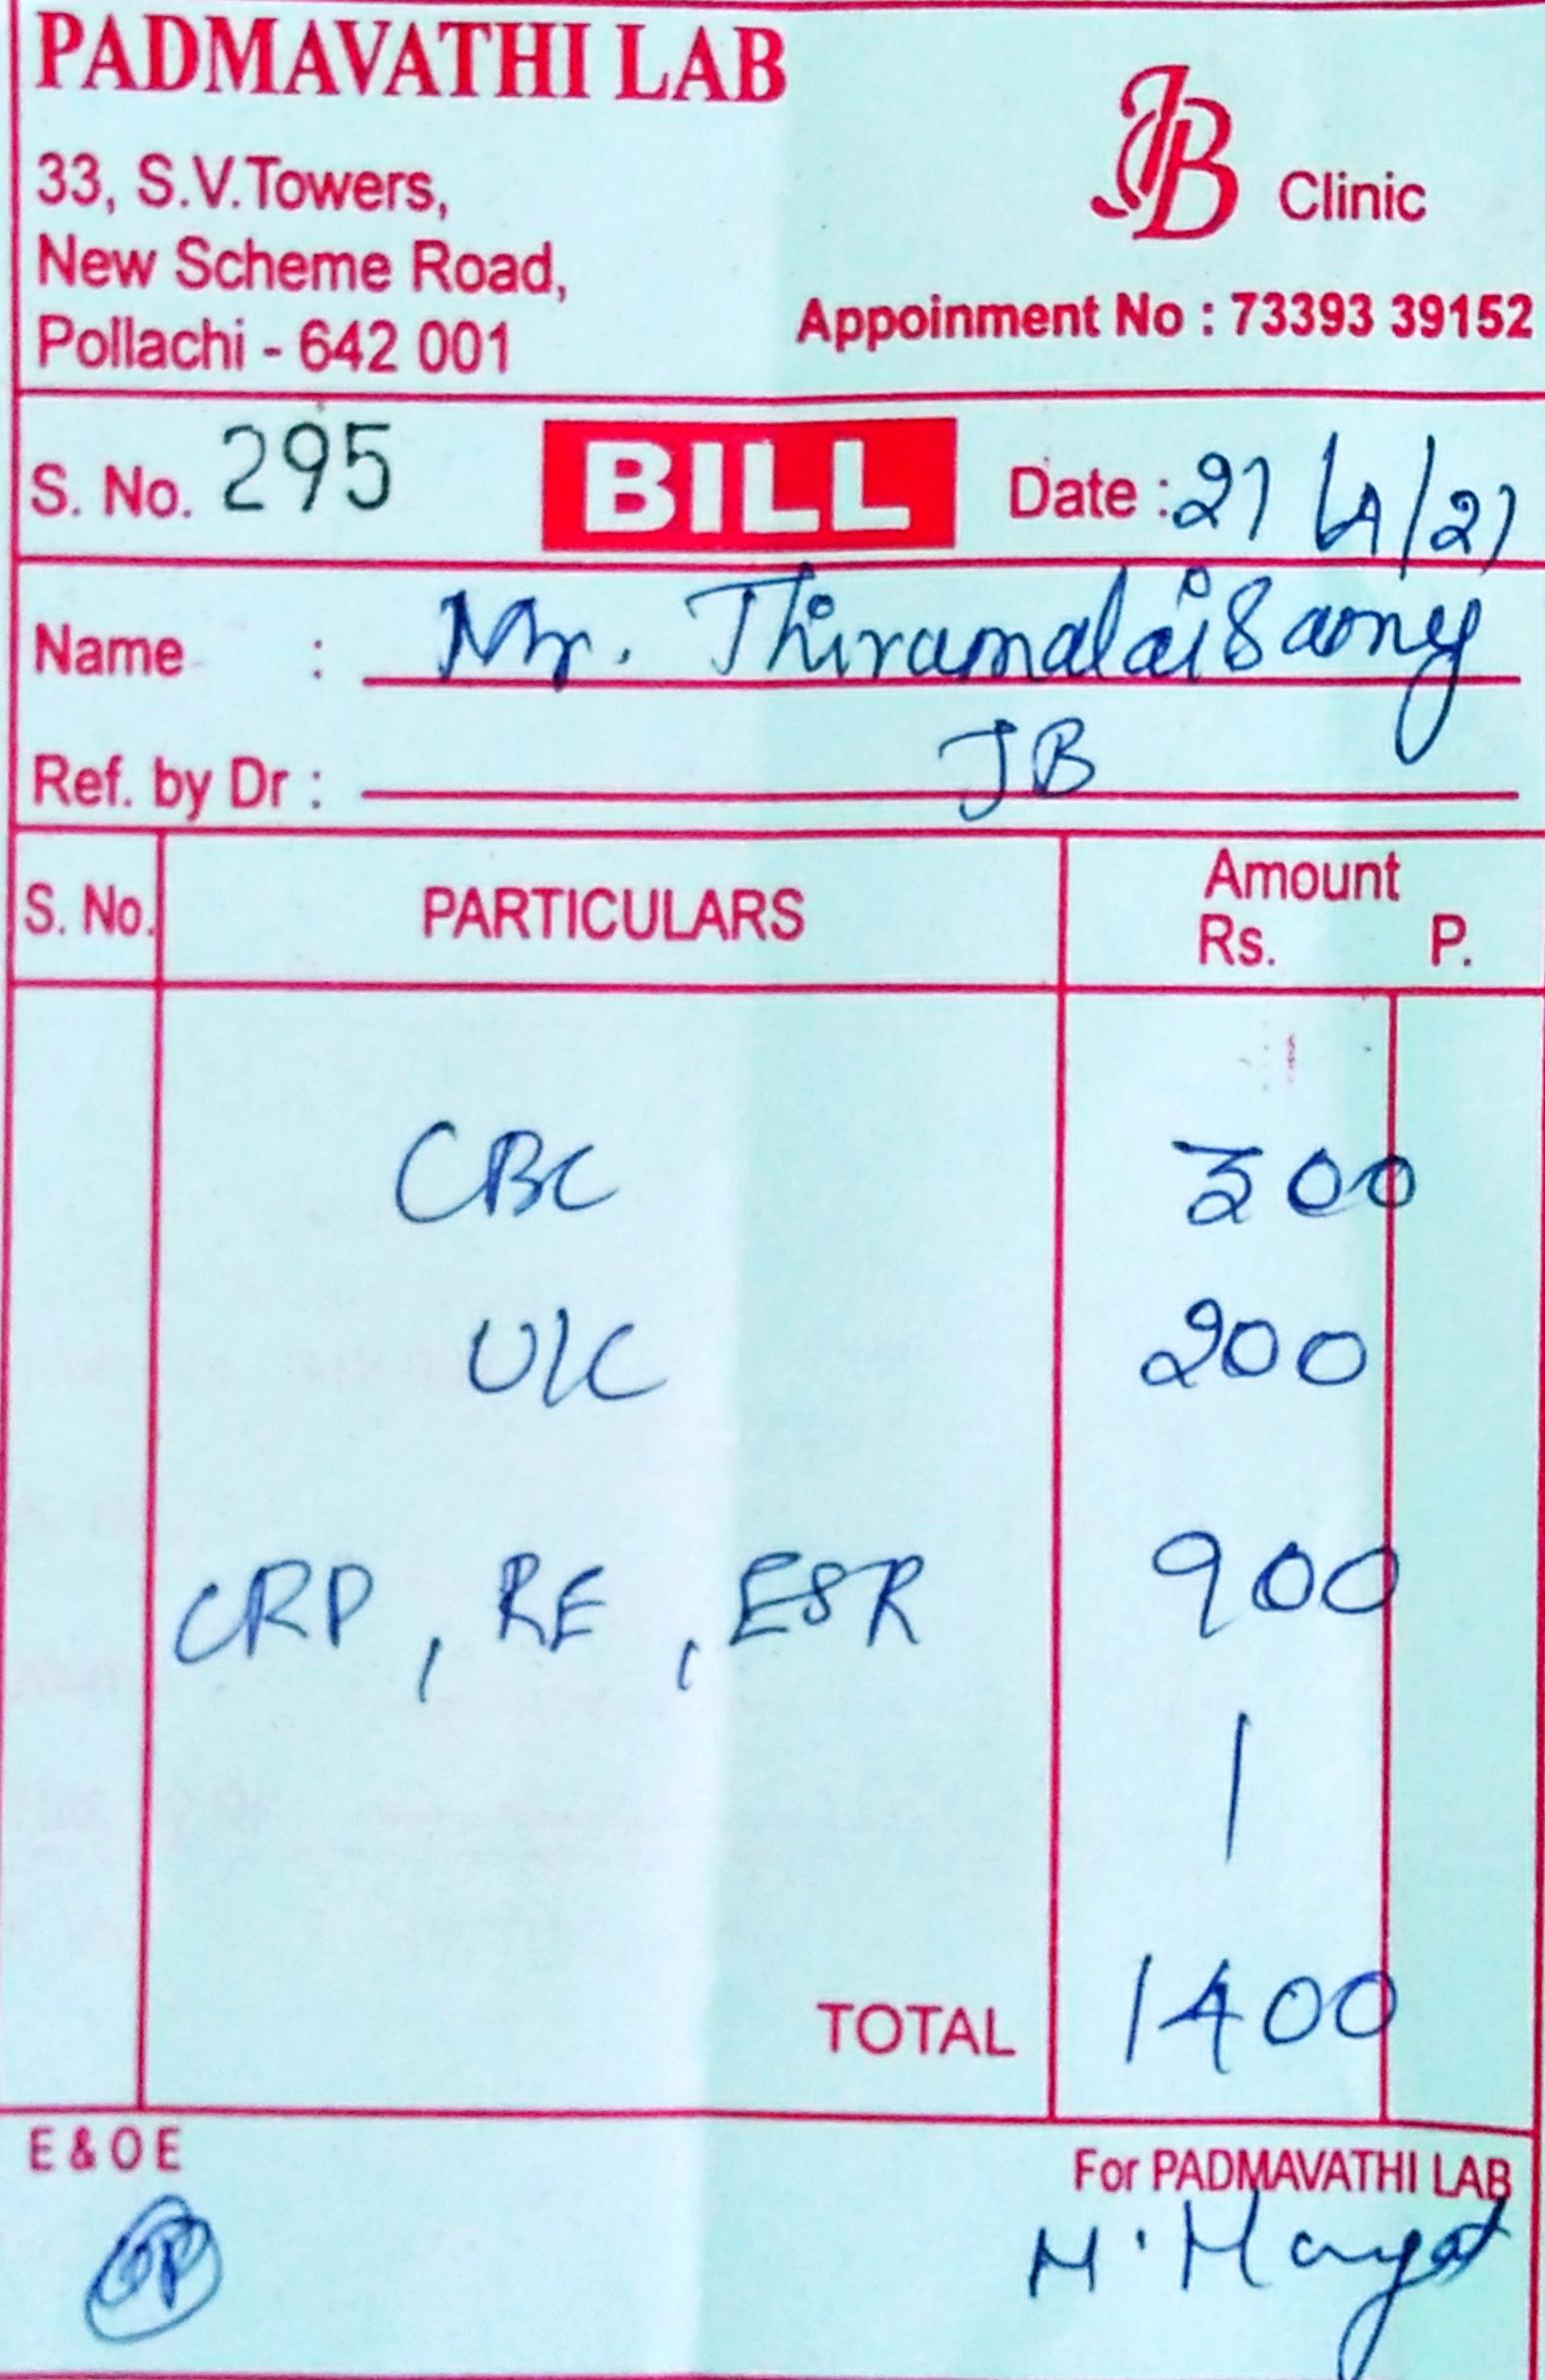 PADMAVATHI LAB
33, S.V.Towers,
New Scheme Road,
Pollachi - 642 001
JB Clinic
Appoinment No : 73393 39152
S. No. 295 BILL Date : 21/4/21
Name : Mr. Thiramalaisamy
Ref. by Dr : JB
S. No. PARTICULARS Amount Rs. P.
CBC 300
U/C 200
CRP, RE, ESR 900
TOTAL 1400
E & O E
For PADMAVATHI LAB
OP